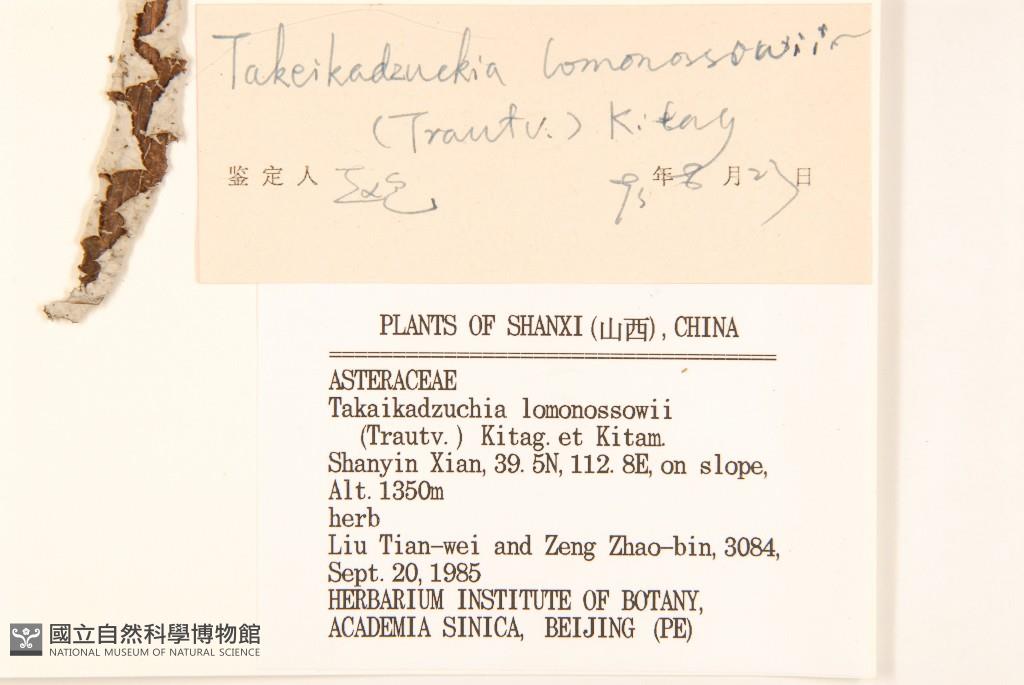 Takeikadzuckia lomonossowii
(Trautv.) Kitag
鉴定人 95年8月23日
PLANTS OF SHANXI(山西), CHINA
ASTERACEAE
Takaikadzuchia lomonossowii
(Trautv.) Kitag. et Kitam.
Shanyin Xian, 39. 5N, 112. 8E, on slope,
Alt. 1350m
herb
Liu Tian-wei and Zeng Zhao-bin, 3084,
Sept. 20, 1985
HERBARIUM INSTITUTE OF BOTANY,
ACADEMIA SINICA, BEIJING (PE)
國立自然科學博物館
NATIONAL MUSEUM OF NATURAL SCIENCE